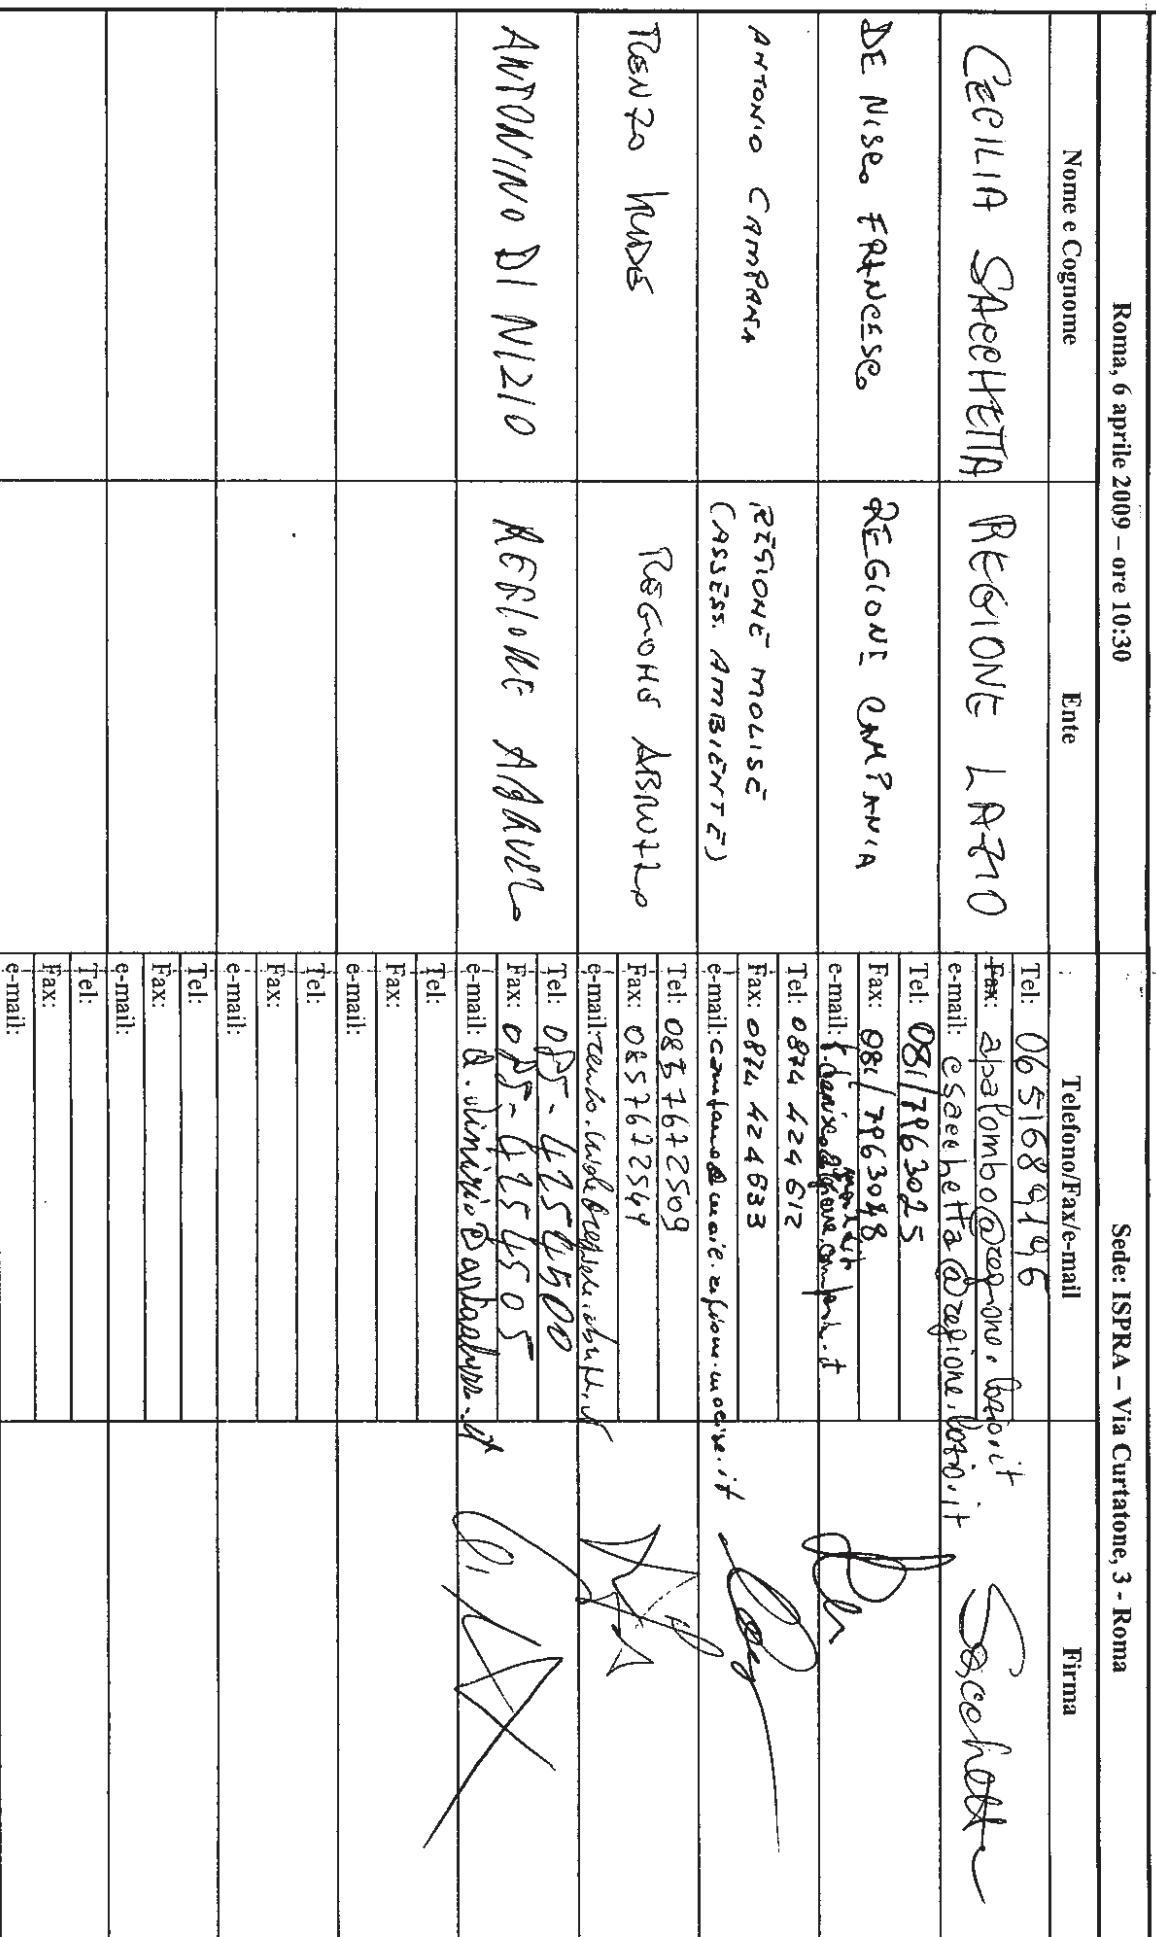 Roma, 6 aprile 2009 – ore 10:30
Sede: ISPRA – Via Curtatone, 3 - Roma
Nome e Cognome
Ente
Telefono/Fax/e-mail
Firma
CECILIA SACCHETTA
REGIONE LAZIO
Tel: 0651689196
Fax: apalombo@regione.lazio.it
e-mail: csacchetta@regione.lazio.it
Sacchetta
DE NISCO FRANCESCO
REGIONE CAMPANIA
Tel: 081/7963025
Fax: 081/7963048
e-mail:
ANTONIO CAMPANA
REGIONE MOLISE
(ASSESS. AMBIENTE)
Tel: 0874 424612
Fax: 0874 424633
e-mail:
RENZO
REGIONE ABRUZZO
Tel: 0857672509
Fax: 0857672549
e-mail:
ANTONINO DI NIZIO
REGIONE ABRUZZO
Tel: 085-4254500
Fax: 085-4254505
e-mail: a.dinizio@artaabruzzo.it
Tel:
Fax:
e-mail:
Tel:
Fax:
e-mail:
Tel:
Fax:
e-mail:
Tel:
Fax:
e-mail: